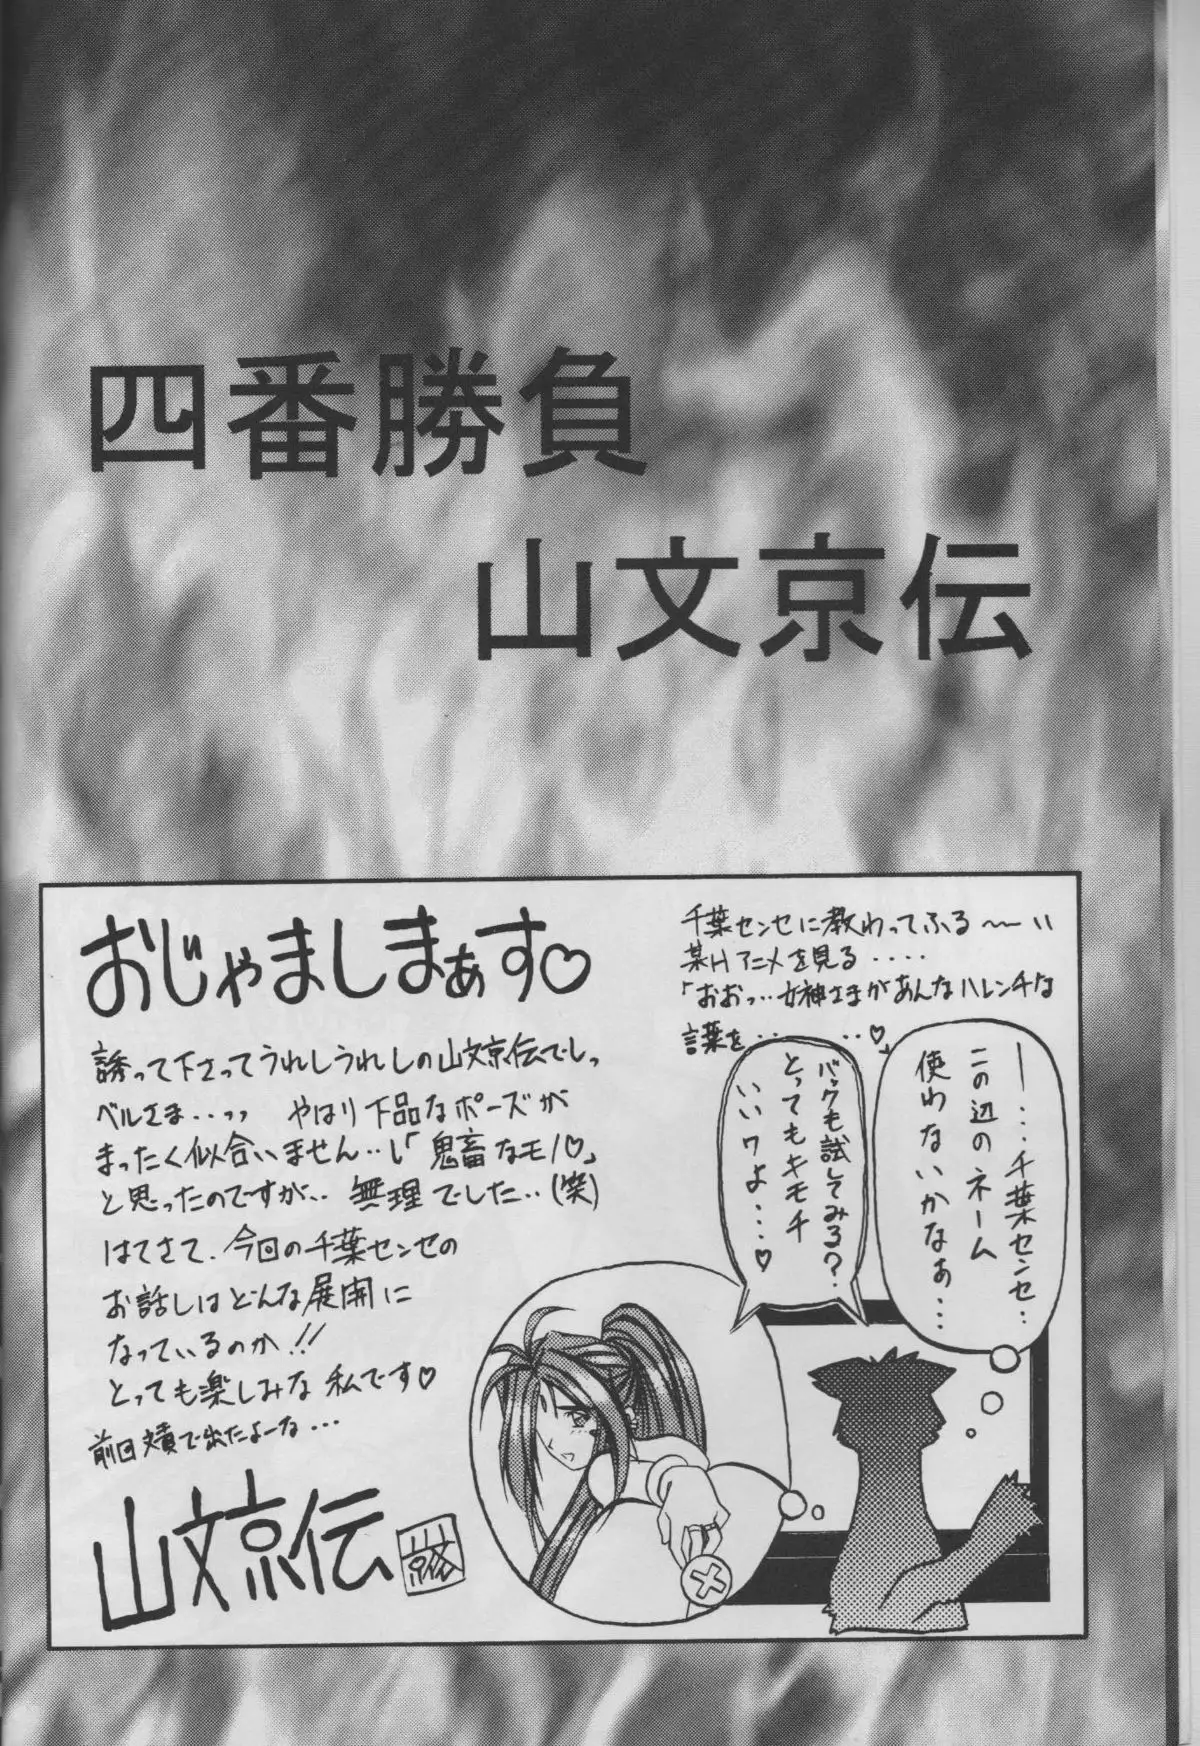 四番勝負
山文京伝
おじゃましまぁす♡
誘って下さってうれしうれしの山文京伝でしっ
ベルさま・・ッッ やはり下品なポーズが
まったく似合いません・・し「鬼畜なモノ♡」
と思ったのですが・・無理でした・・(笑)
はてさて、今回の千葉センセの
お話しはどんな展開に
なっているのか!!
とっても楽しみな私です♡
前回
で出たよーな・・・
山文京伝
千葉センセに教わってふる〜〜い
某Hアニメを見る・・・・
「おおっ・・・女神さまがあんなハレンチな
言葉を・・・・・・・・♡」
ー・・・千葉センセ・・
この辺のネーム
使わないかなぁ・・・
バックも試してみる?
とってもキモチ
いいワよ・・・♡